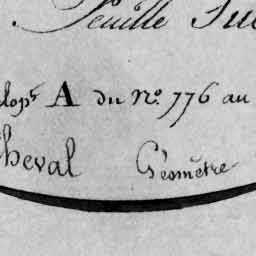 Feuille Su
lopt A du No. 776 au
Cheval Géomètre